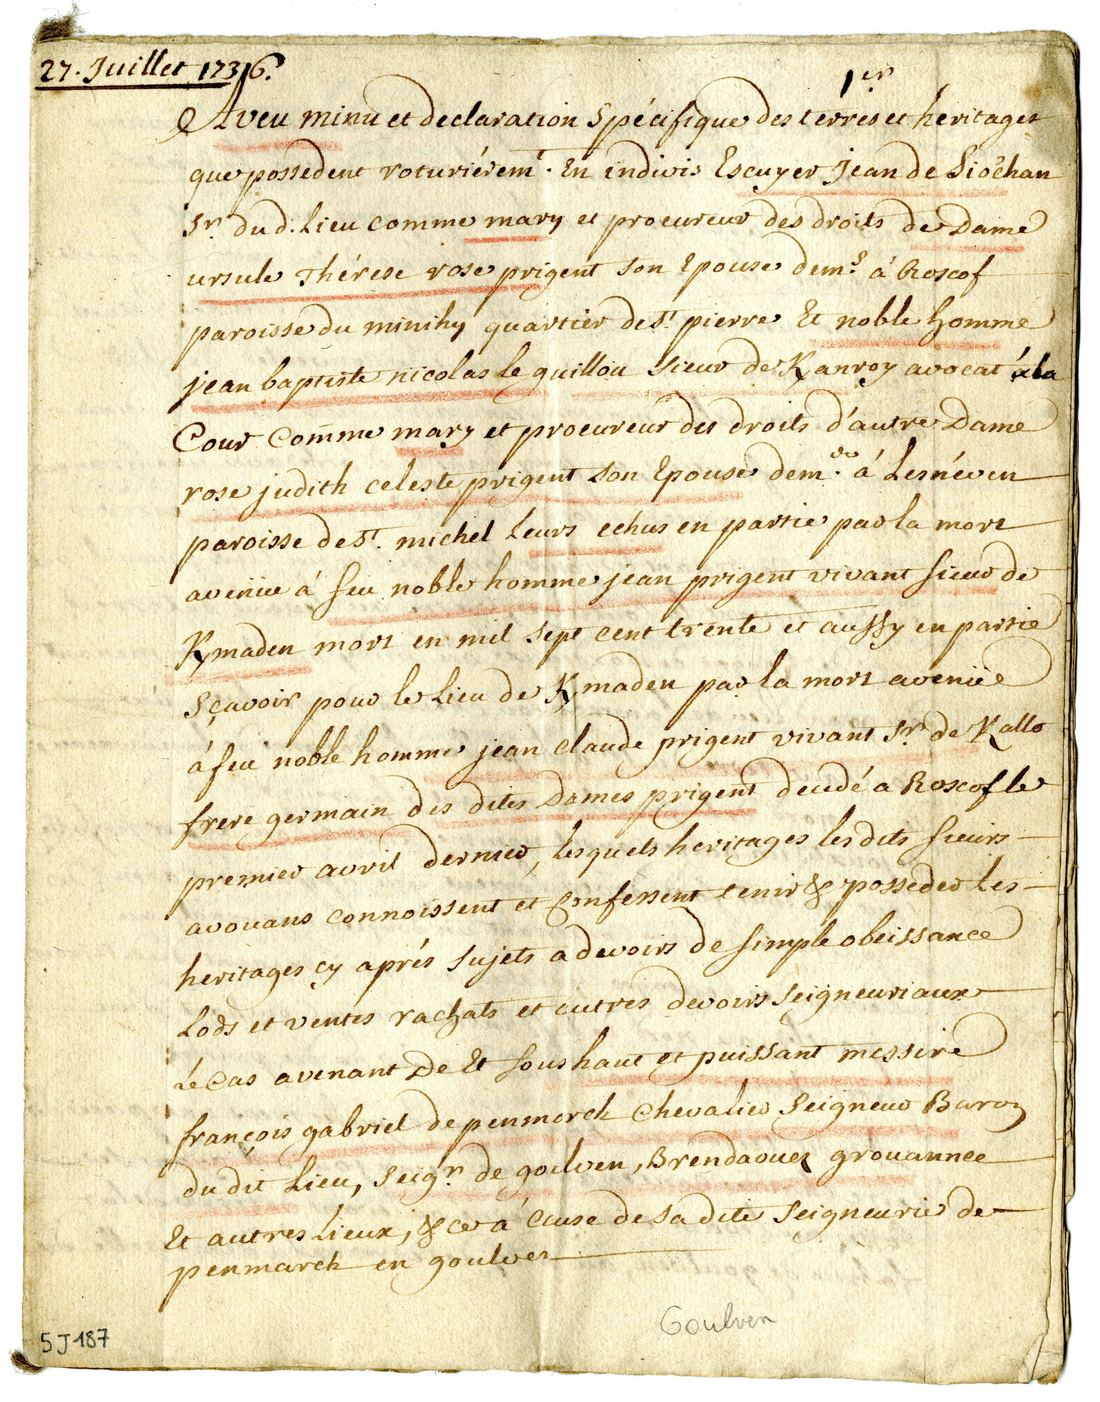 27. Juillet 1736.
1er
Aveu minu et declaration Spécifique des terres et heritages
que possedent roturiéremt. En indivis Escuyer Jean de Siochan
Sr. du d. Lieu comme mary et procureur des droits de Dame
ursule Thérese rose prigent son Epouse demt. à Roscof
paroisse du minihy quartier de St. pierre Et noble homme
jean baptiste nicolas le guillou sieur de Kanroy avocat à la
Cour Comme mary et procureur des droits d'autre Dame
rose judith celeste prigent son Epouse dem. à Lesnéven
paroisse de St. michel Leurs echus en partie par la mort
aveniie à feu noble homme jean prigent vivant sieur de
Kmaden mort en mil sept cent trente et aussy en partie
Sçavoir pour le Lieu de Kmaden par la mort aveniie
à feu noble homme jean claude prigent vivant Sr. de Kallo
frere germain des dites Dames prigent decedé a Roscof le
premier avril dernier, lesquels heritages les dits sieurs
avouans connoissent et Confessent tenir & posseder les
heritages cy aprés sujets a devoirs de simple obeissance
Lods et ventes rachats et autres devoirs seigneuriaux
Le Cas avenant De Et sous haut et puissant messire
françois gabriel de penmarch Chevalier Seigneur Baron
du dit Lieu, Seigr. de goulven, Brendaouez grouannec
Et autres Lieux, & ce à cause de sa dite Seigneurie de
penmarch en goulven
Goulven
5 J 187